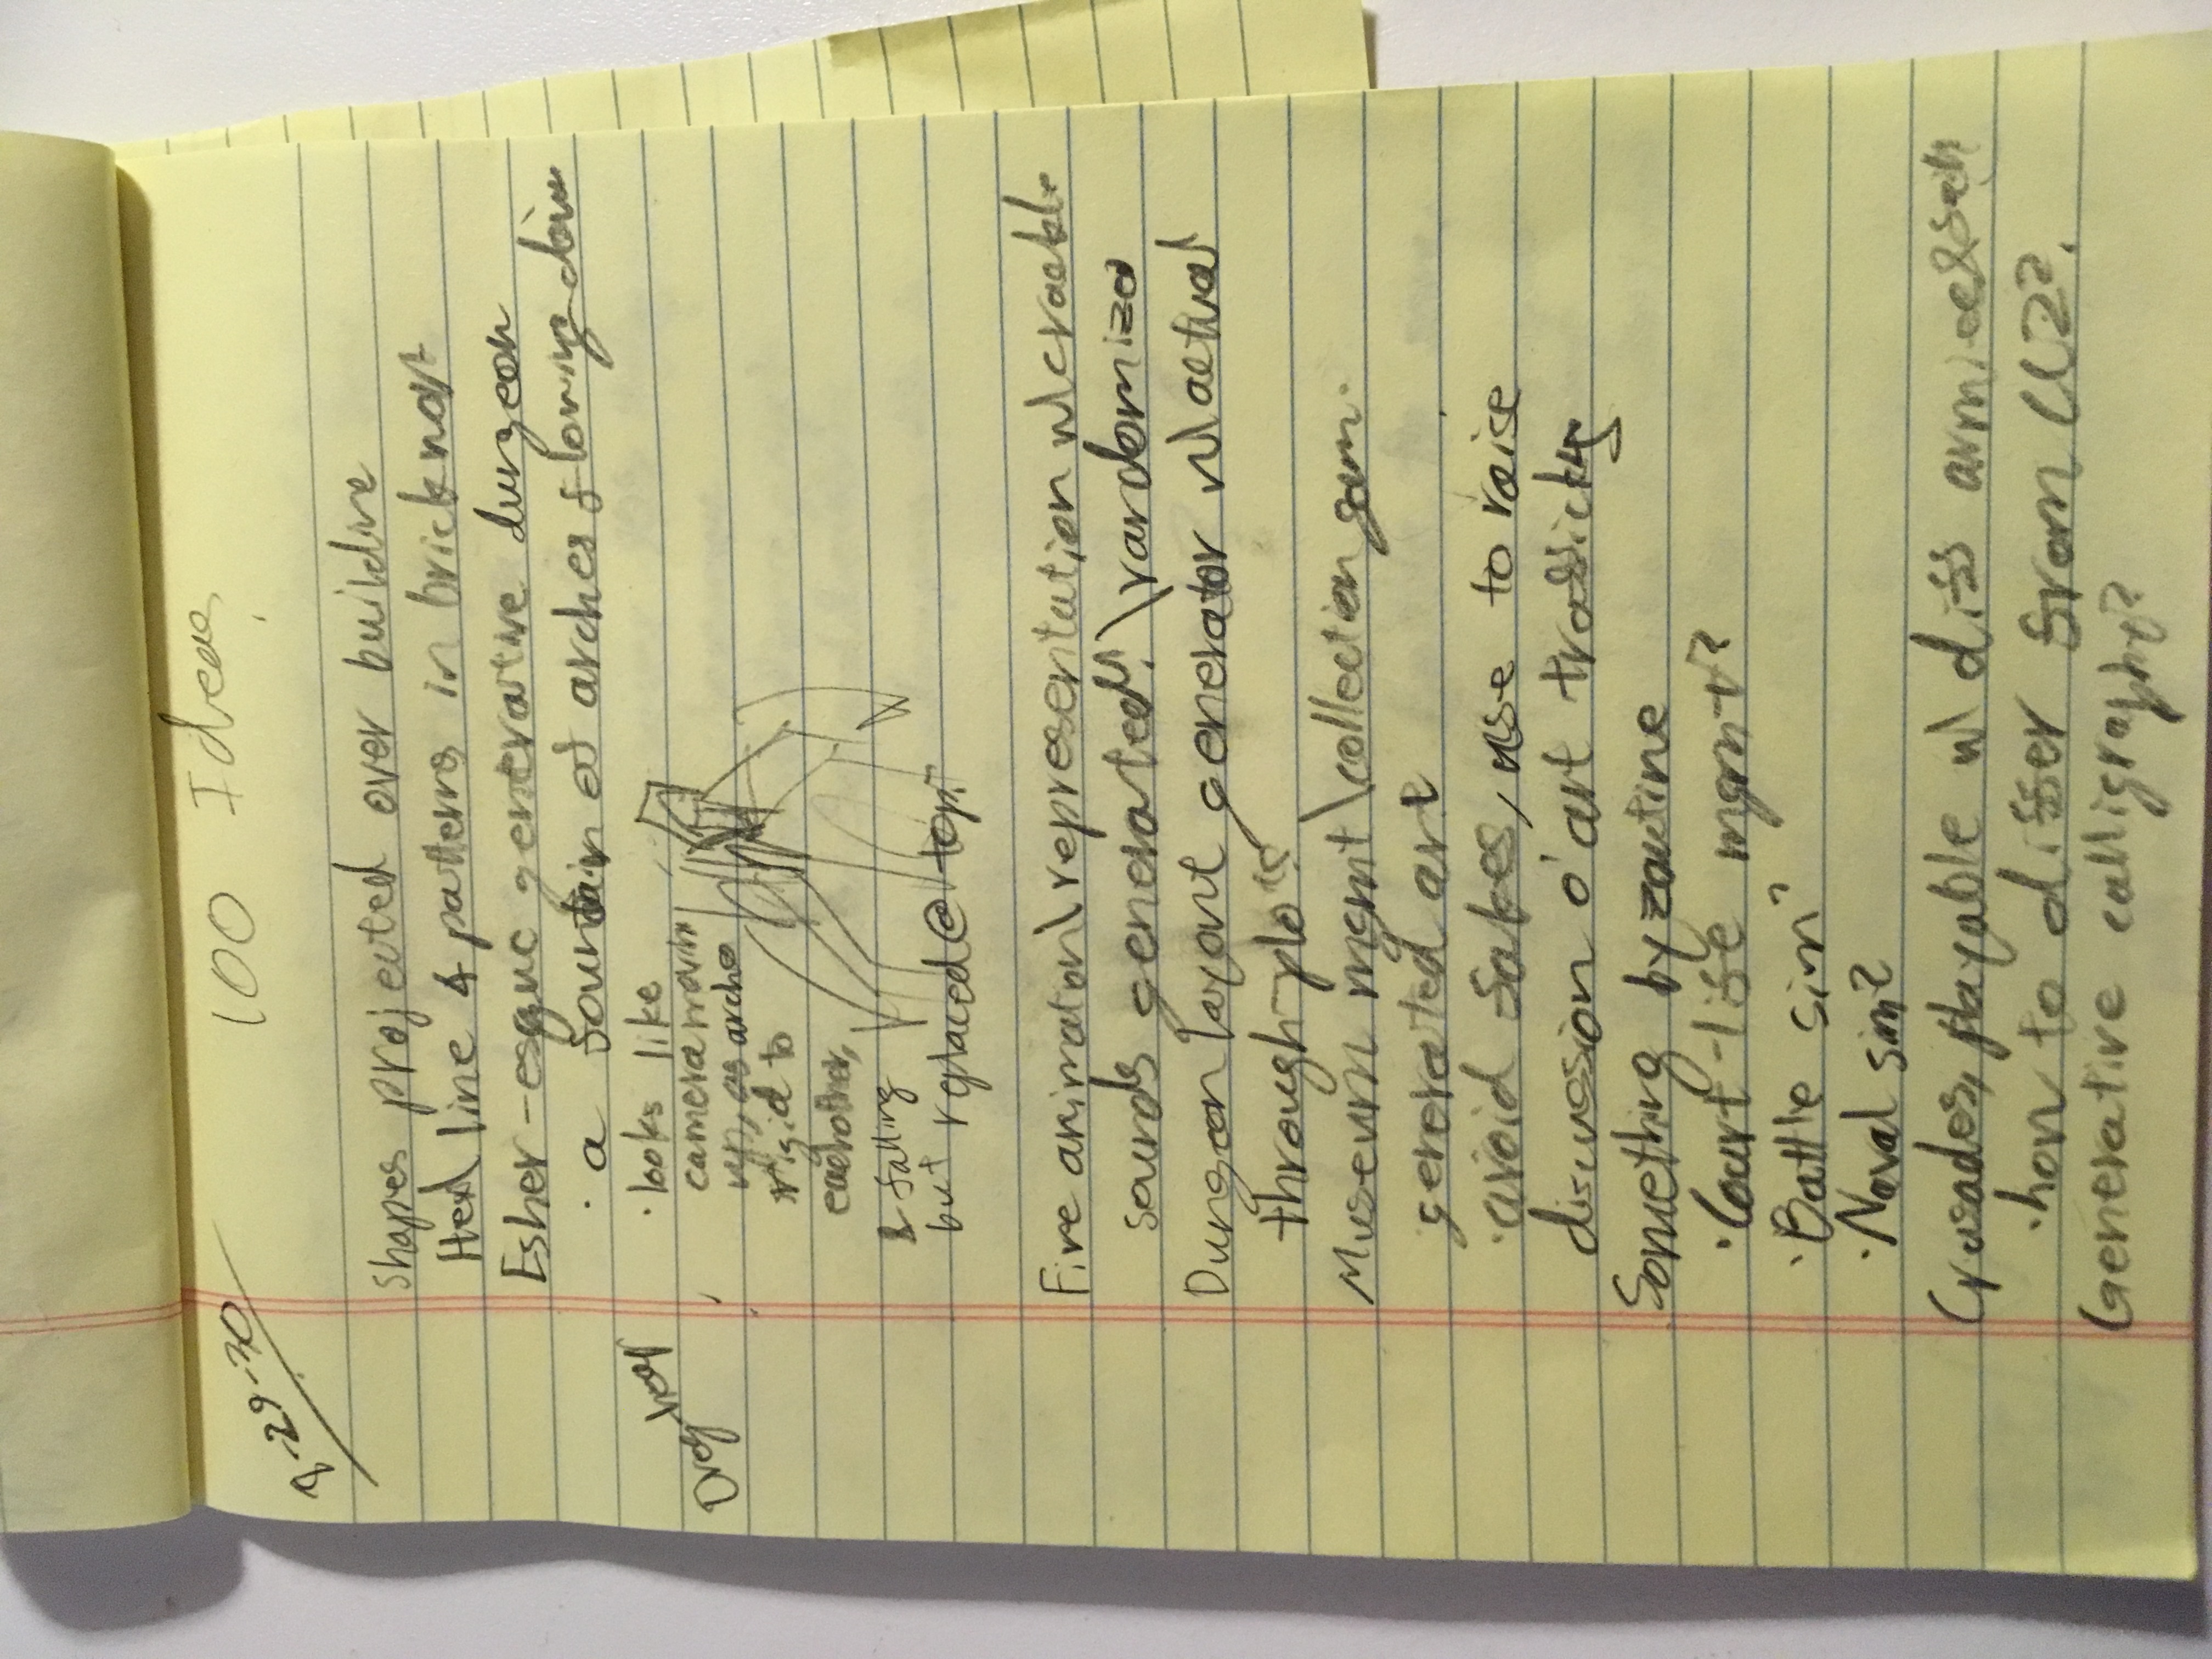 100 Ideas
8-29-30
Shapes projected over buildine
line & patterns in brickwork
Esher-esque generative dungeon
· a fountain of arches flowing down
· looks like
camera movin
up, as arche
rigid to
eachother,
& falling
but replaced @ top.
Fire animation\representation w\crackle
sounds generated! \randomized
Dungeon layout generator w\actual
through-plo
Museum mgmt\collection gam.
generated art
· avoid fakes, use to raise
discussion o' art
Something byzantine
· Court-life mgmt?
· Battle sim?
· Naval sim?
Crusades, playable w\ diff armies &
· how to differ from
Generative calligraphy?